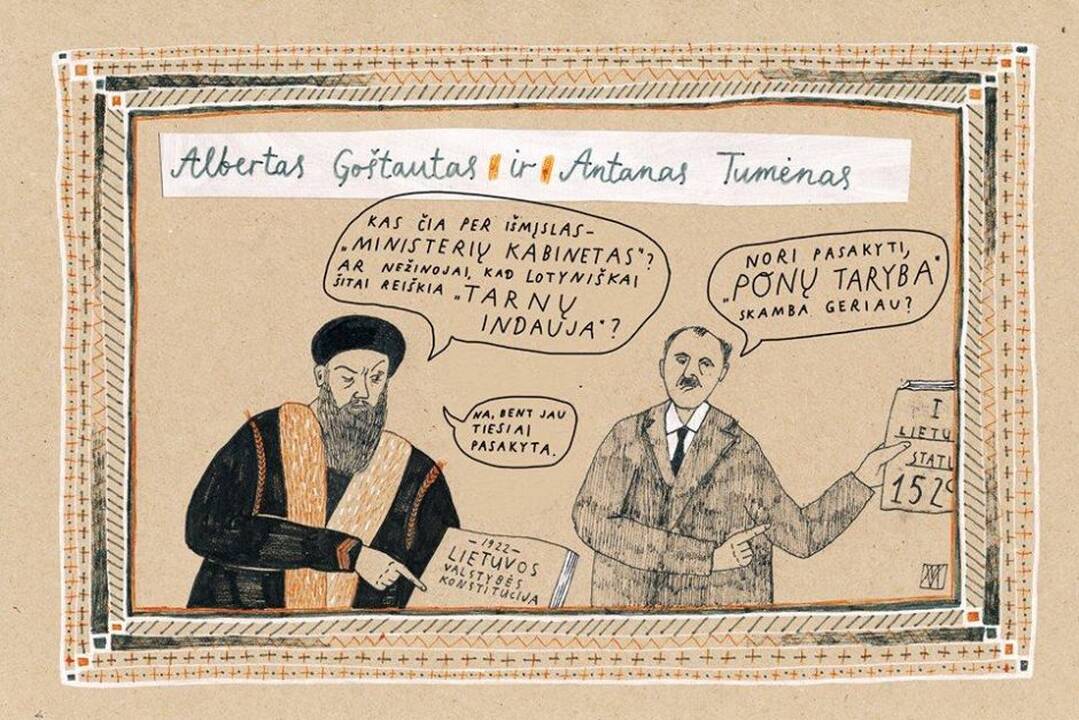 Albertas Goštautas ir Antanas Tumėnas
KAS ČIA PER IŠMĮSLAS–
„MINISTERIŲ KABINETAS“?
AR NEŽINOJAI, KAD LOTYNIŠKAI
ŠITAI REIŠKIA „TARNŲ
INDAUJA“?
NORI PASAKYTI,
„PONŲ TARYBA“
SKAMBA GERIAU?
NA, BENT JAU
TIESIAI
PASAKYTA.
–1922–
LIETUVOS
VALSTYBĖS
KONSTITUCIJA
I
LIETU
STATU
152